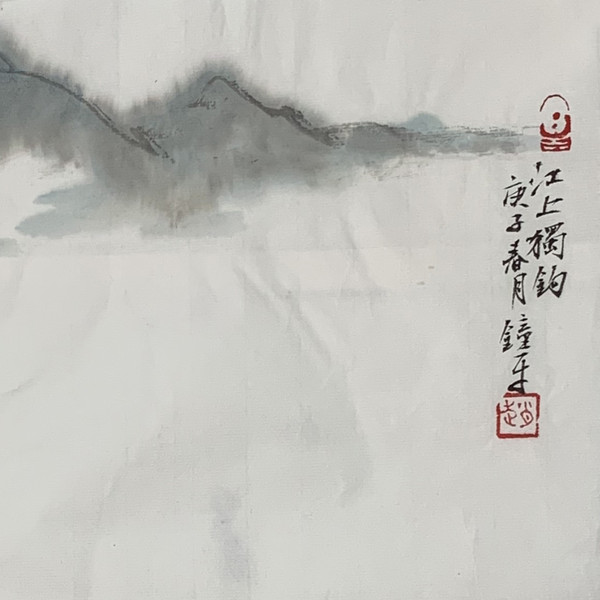 江上獨釣
庚子春月 鐘平
趙